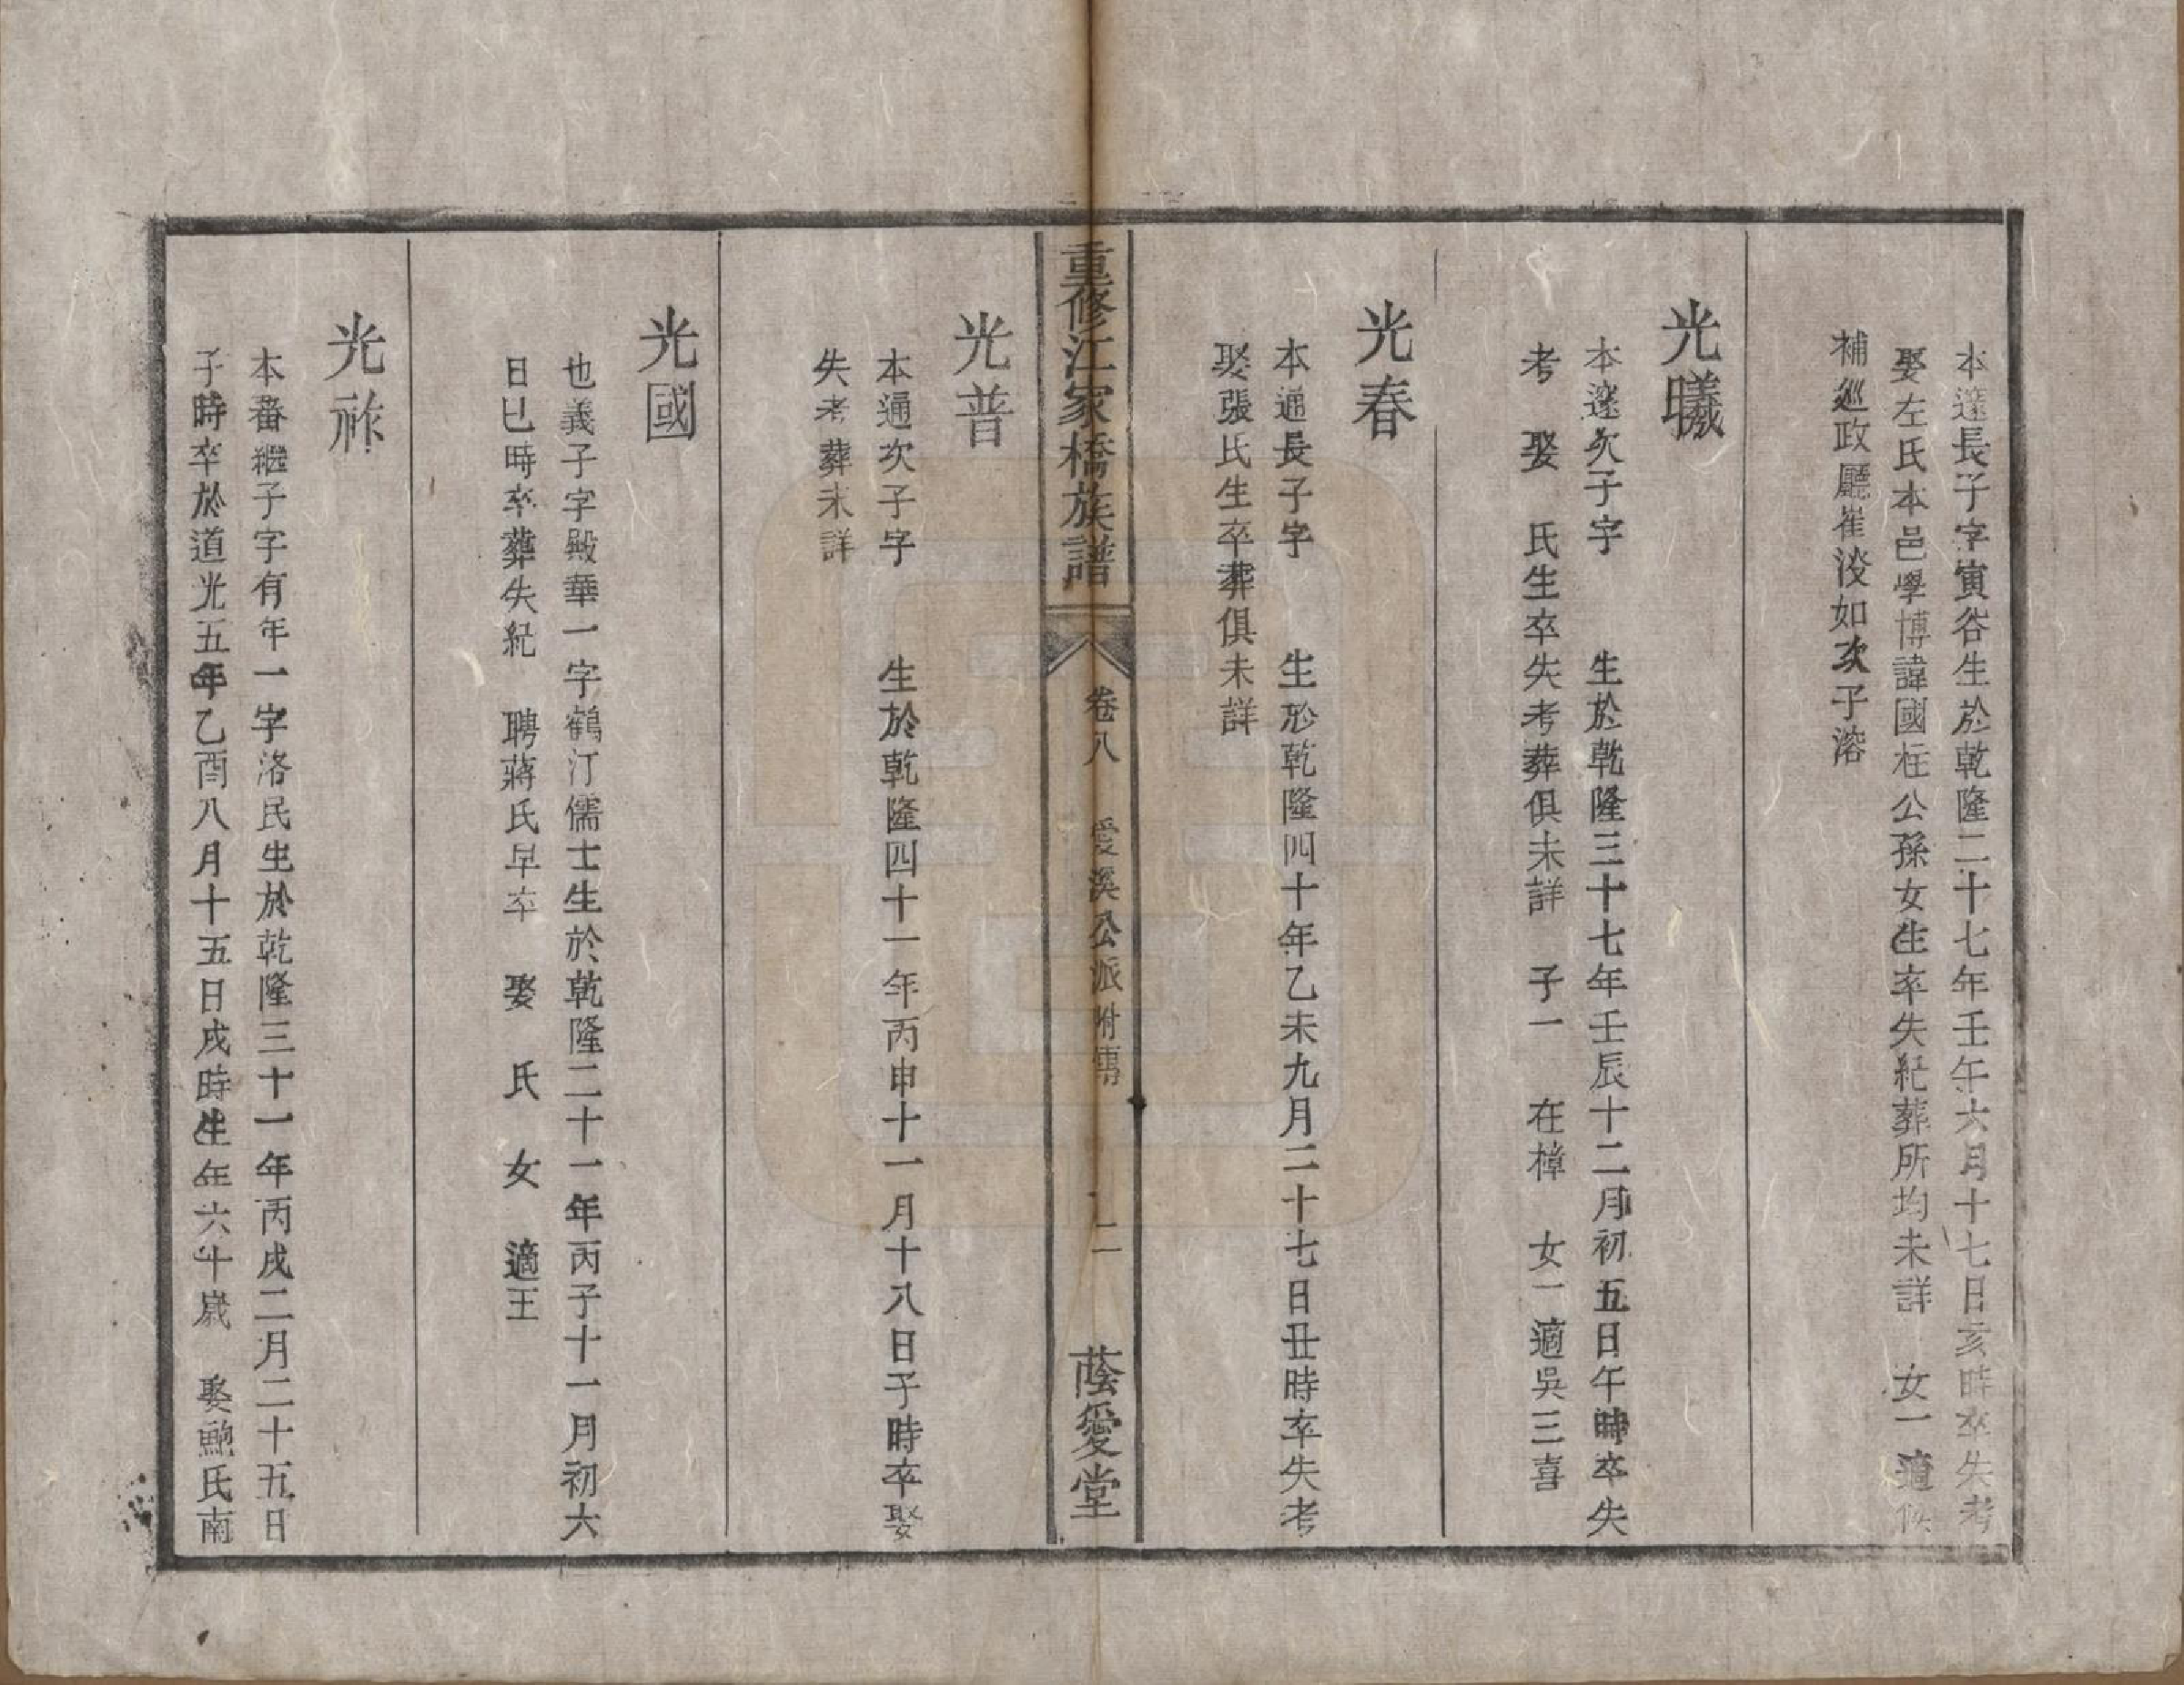 本邃長子字寅谷生於乾隆二十七年壬午六月十七日亥時卒失考
娶左氏本邑學博諱國柱公孫女生卒失紀葬所均未詳　女一適候
補巡政廳崔浚如次子溶
光曦
本邃次子字　　生於乾隆三十七年壬辰十二月初五日午時卒失
考　娶　氏生卒失考葬俱未詳　子一　在樟　女一適吳三喜
光春
本通長子字　　生於乾隆四十年乙未九月二十七日丑時卒失考
娶張氏生卒葬俱未詳
重修江家橋族譜
卷八　愛溪公派附傳　二
蔭愛堂
光普
本通次子字　　生於乾隆四十一年丙申十一月十八日子時卒娶
失考葬未詳
光國
也義子字殿華一字鶴汀儒士生於乾隆二十一年丙子十一月初六
日巳時卒葬失紀　聘蔣氏早卒　娶　氏　女　適王
光祚
本番繼子字有年一字洛民生於乾隆三十一年丙戌二月二十五日
子時卒於道光五年乙酉八月十五日戌時生年六十歲　娶鮑氏南